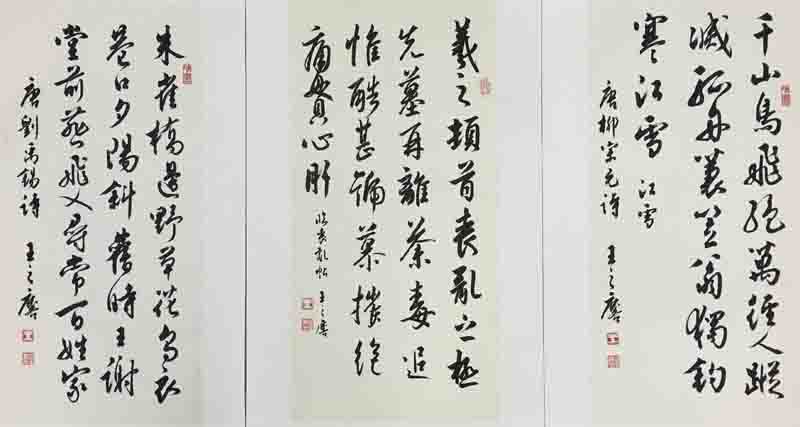 千山鳥飛絕萬徑人蹤
滅孤舟蓑笠翁獨釣
寒江雪 江雪
唐柳宗元詩 王之
羲之頓首喪亂之極
先墓再離荼毒追
惟酷甚號慕摧絕
痛貫心肝 臨喪亂帖 王之
朱雀橋邊野草花烏衣
巷口夕陽斜舊時王謝
堂前燕飛入尋常百姓家
唐劉禹錫詩 王之